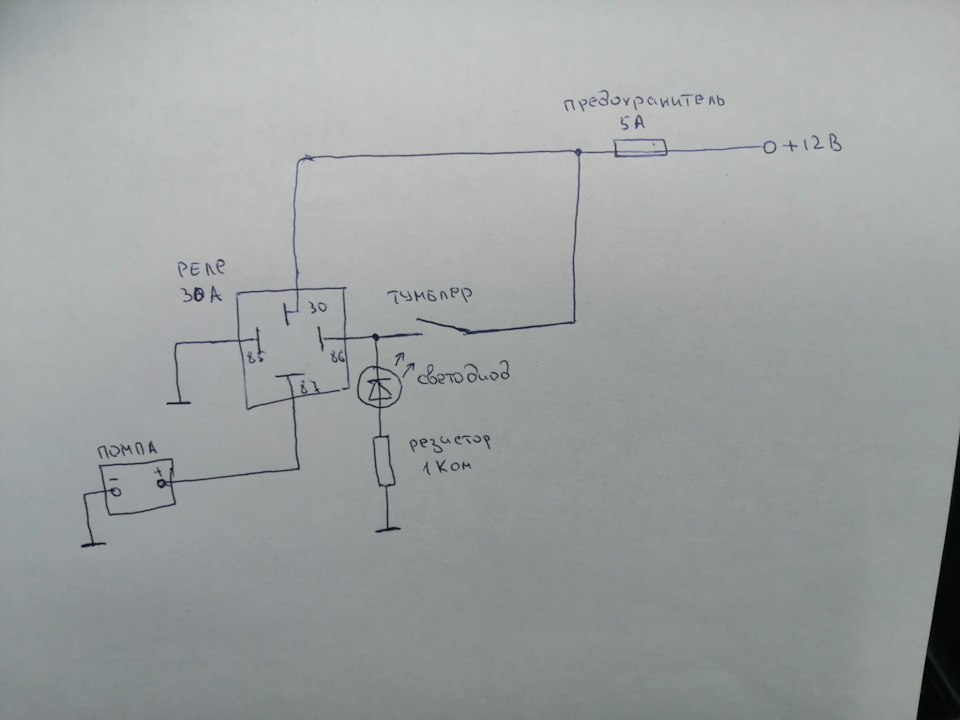 предохранитель
5А
+12В
РЕЛЕ
30А
30
тумблер
85
86
87
светодиод
ПОМПА
- +
резистор
1 Ком